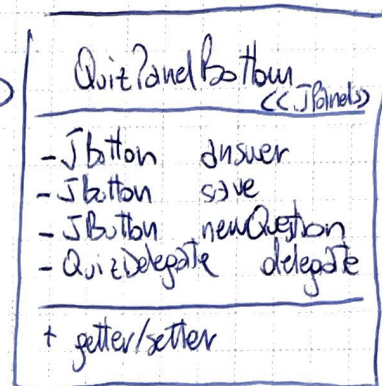 QuizPanelBottom
<<JPanels>>
- JButton answer
- JButton save
- JButton newQuestion
- QuizDelegate delegate
+ getter/setter